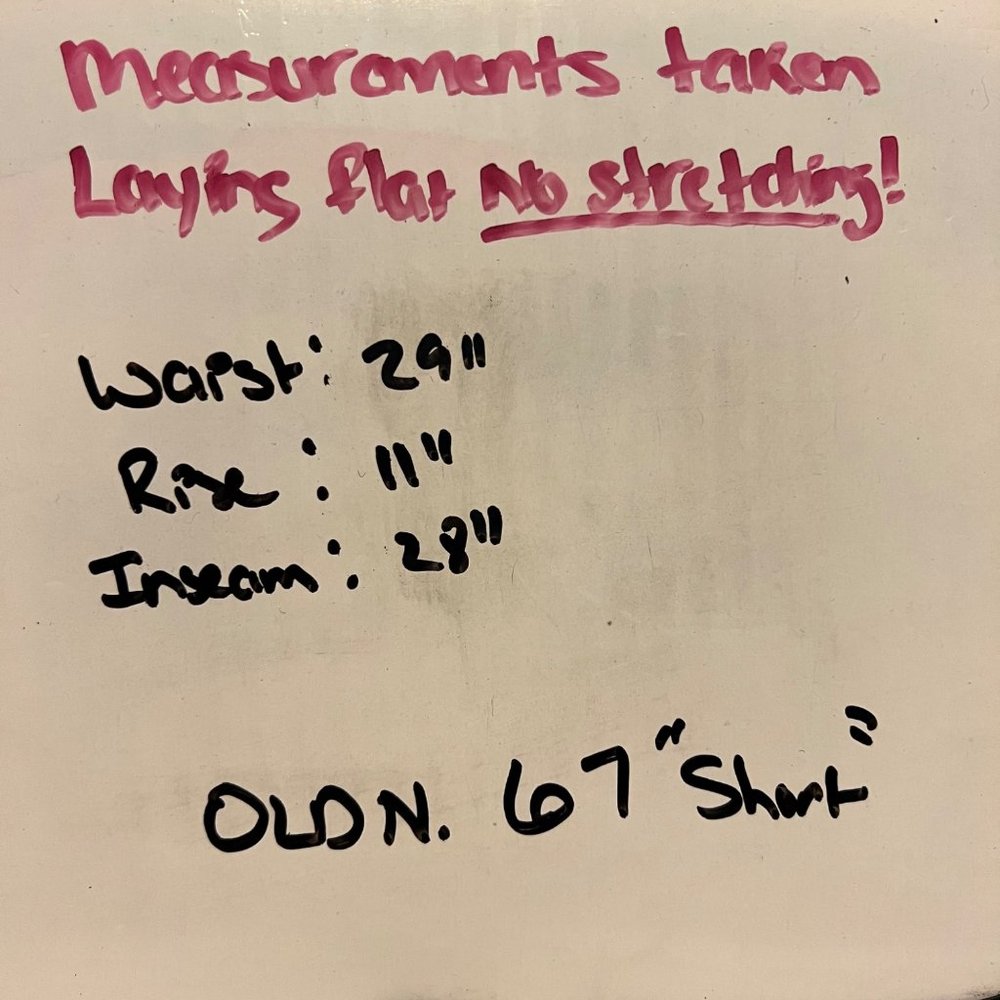 Measurements taken
Laying flat No stretching!
Waist: 29"
Rise: 11"
Inseam: 28"
OLD N. 67 "Short"